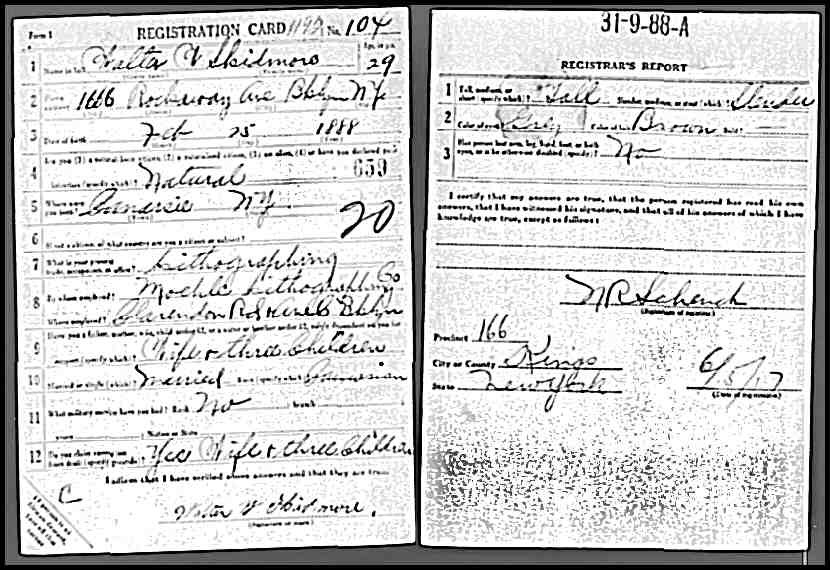 Form 1 REGISTRATION CARD 1192 No. 104
1 Walter V Skidmore 29
Name in full Age, in yrs.
2 1666 Rockaway Ave Bklyn NY
3 Date of birth Feb 25 1888
4 Are you (1) a natural born citizen, (2) a naturalized citizen, (3) an alien, (4) or have you declared your
intention (specify which)? Natural 659
5 Where were you born? Canarsie NY
20
6 If not a citizen, of what country are you a citizen or subject?
7 What is your present trade, occupation, or office? Lithographing
8 By whom employed? Moehle Lithographing Co
Where employed? Clarendon Rd & Bklyn
9 Have you a father, mother, wife, child under 12, or a sister or brother under 12, solely dependent on you for
support (specify which)? Wife & three Children
10 Married or single (which)? Married Race (specify which)? Caucasian
11 What military service have you had? Rank No ; branch
years ; Nation or State
12 Do you claim exemption from draft (specify grounds)? Yes Wife & three Children
I affirm that I have verified above answers and that they are true.
C
Walter V Skidmore.
(Signature or mark)
31-9-88-A
REGISTRAR'S REPORT
1 Tall, medium, or short (specify which)? Tall Slender, medium, or stout (which)? Slender
2 Color of eyes? Grey Color of hair? Brown Bald? —
3 Has person lost arm, leg, hand, foot, or both eyes, or is he otherwise disabled (specify)? No
I certify that my answers are true, that the person registered has read his own
answers, that I have witnessed his signature, and that all of his answers of which I have
knowledge are true, except as follows:
N R Schenck
(Signature of registrar)
Precinct 166
City or County Kings
State New York 6/5/17
(Date of registration)